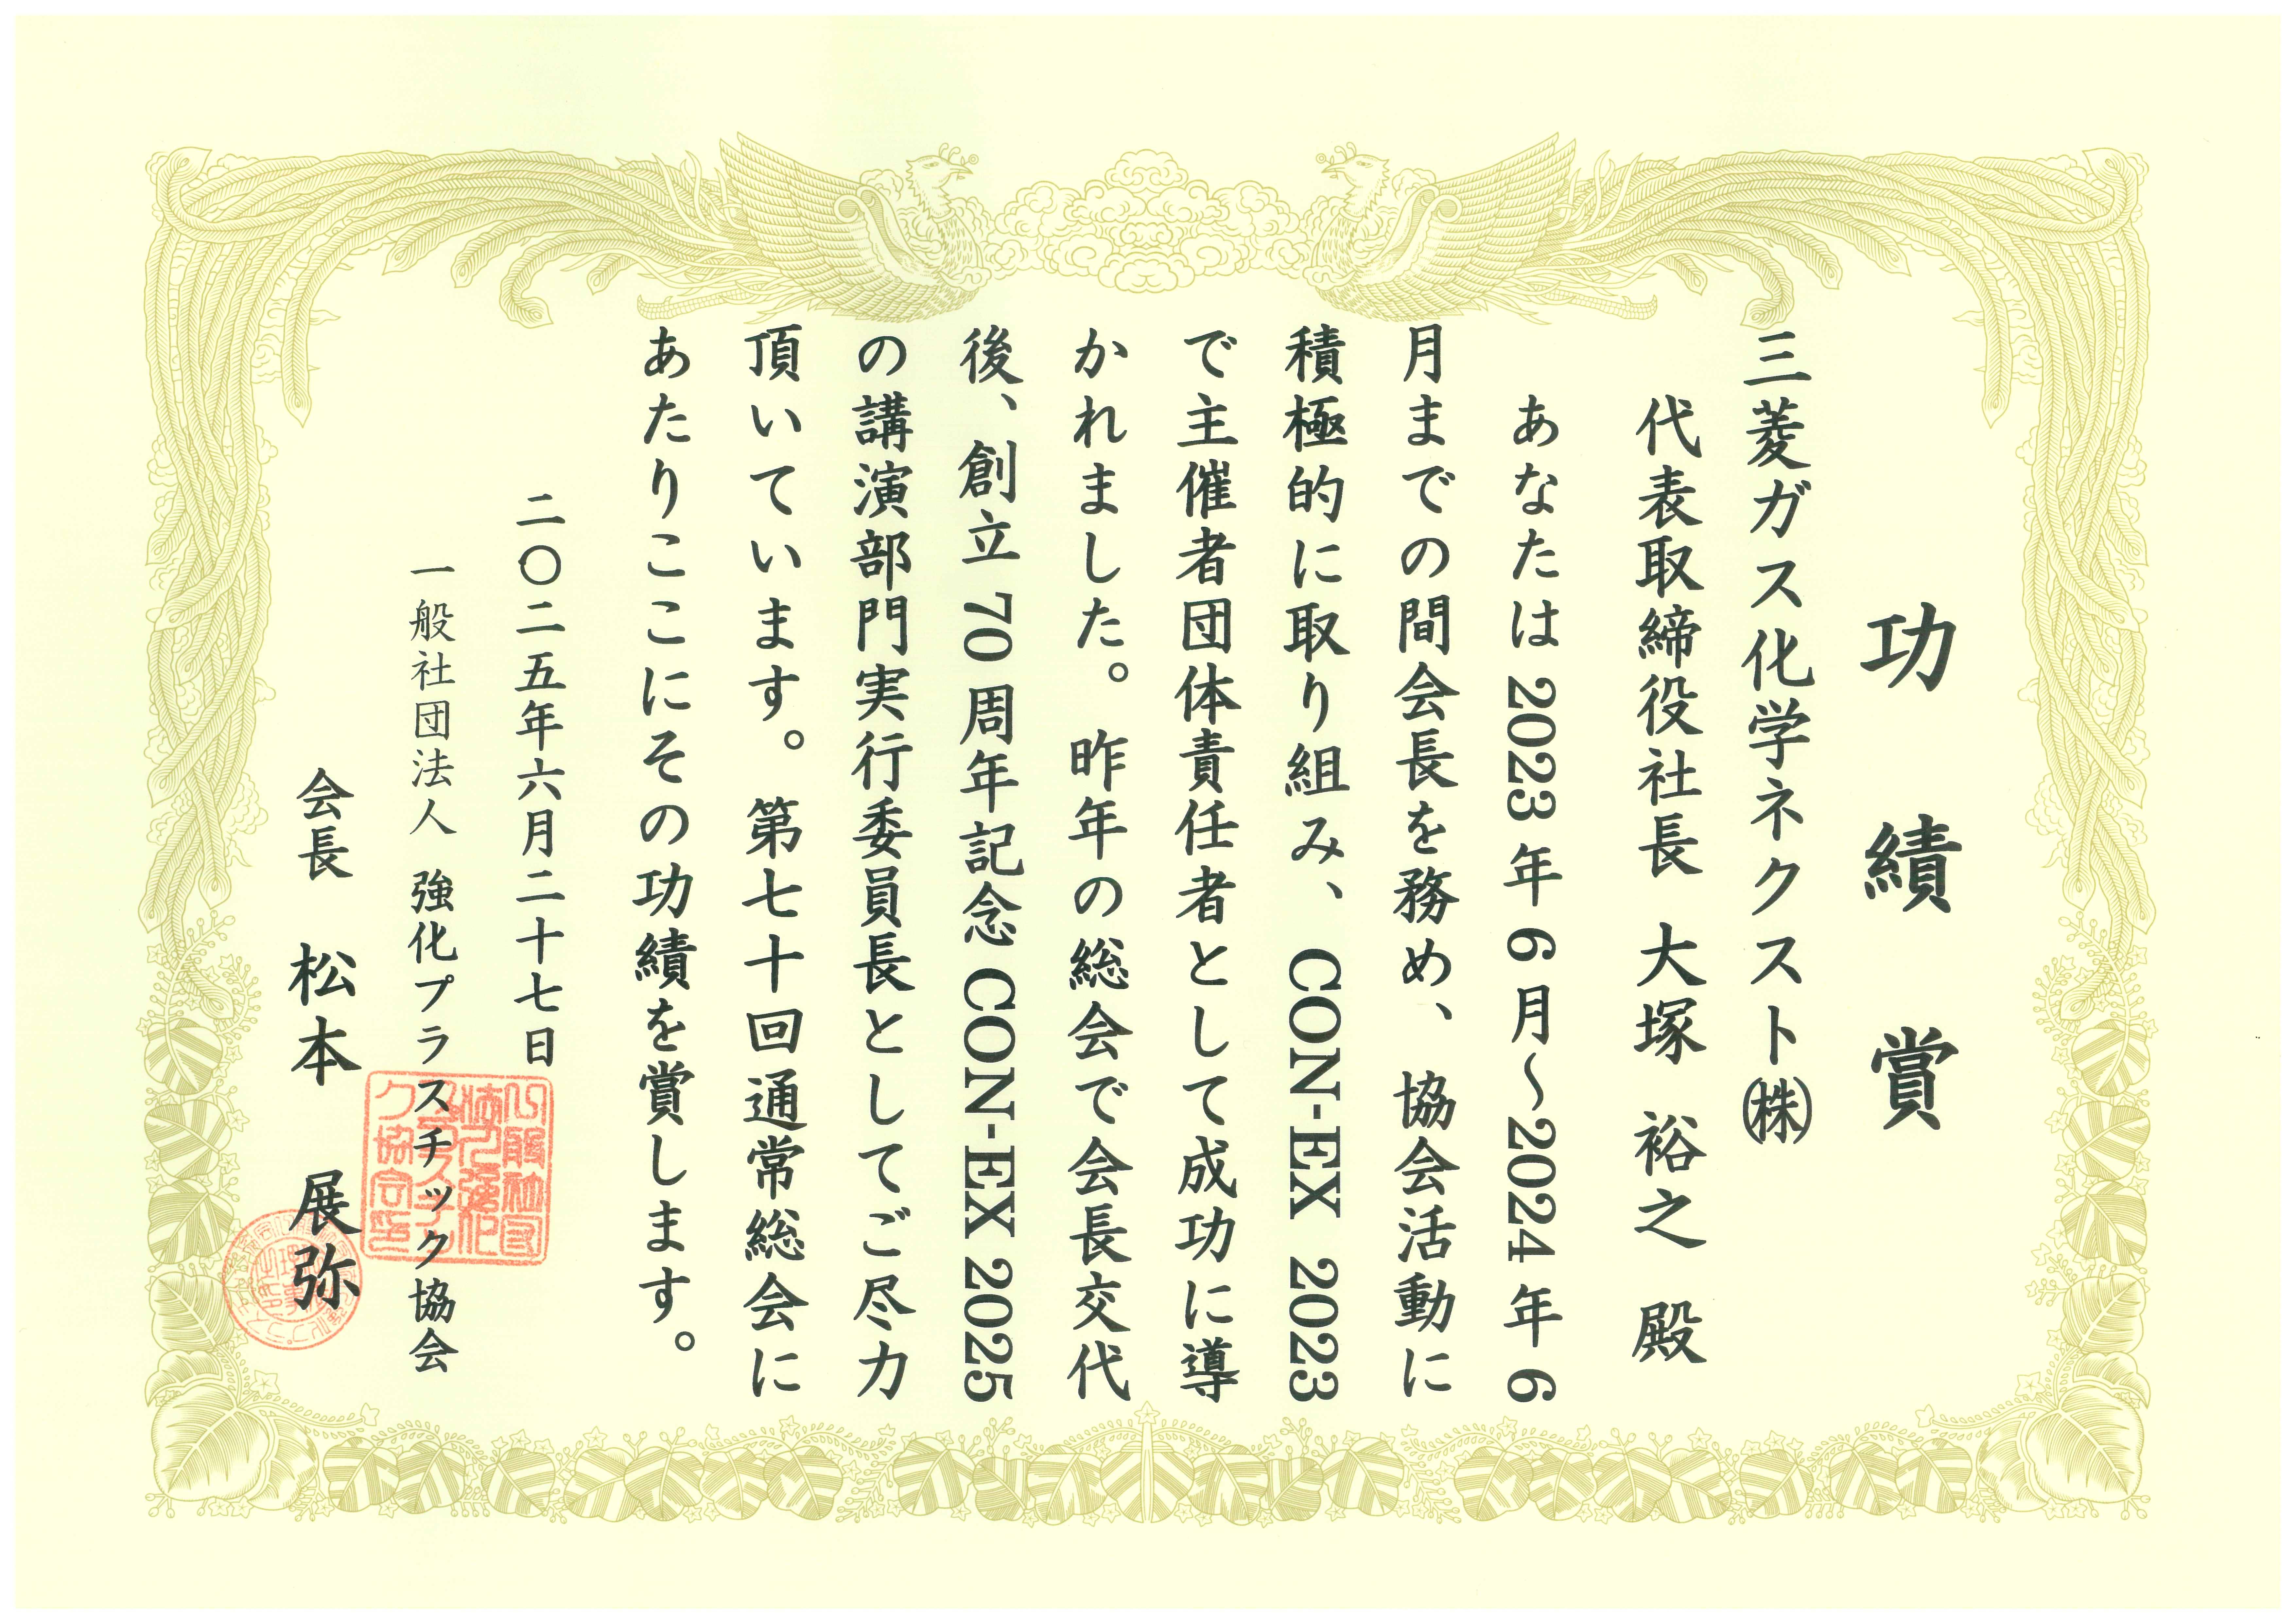 功績賞
三菱ガス化学ネクスト㈱
代表取締役社長 大塚 裕之 殿
あなたは2023年6月～2024年6
月までの間会長を務め、協会活動に
積極的に取り組み、CON-EX 2023
で主催者団体責任者として成功に導
かれました。昨年の総会で会長交代
後、創立70周年記念CON-EX 2025
の講演部門実行委員長としてご尽力
頂いています。第七十回通常総会に
あたりここにその功績を賞します。
二〇二五年六月二十七日
一般社団法人 強化プラスチック協会
会長 松本 展弥